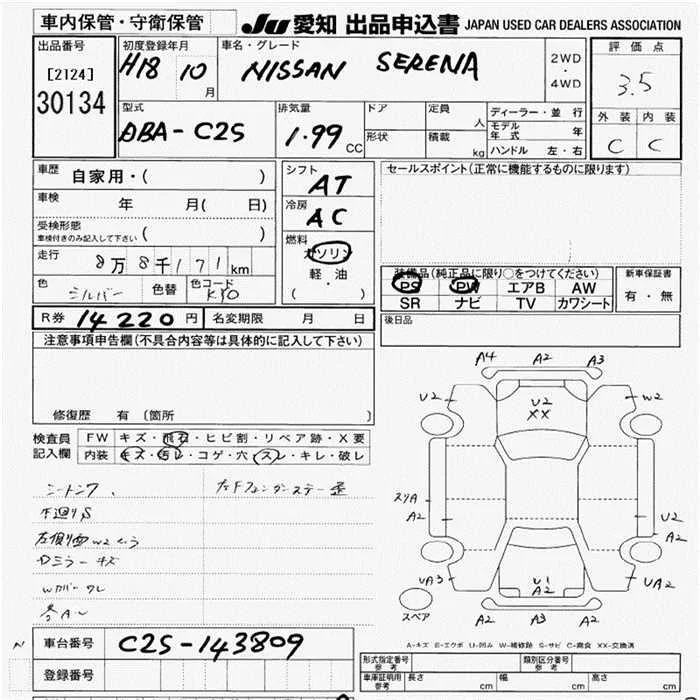 車内保管・守衛保管
JU 愛知 出品申込書 JAPAN USED CAR DEALERS ASSOCIATION
出品番号
[2124]
30134
初度登録年月
H18 10 月
車名・グレード
NISSAN SERENA
2WD
・
4WD
評価点
3.5
外装 内装
C C
型式
DBA-C25
排気量
1.99 CC
ドア
形状
定員 人
積載 kg
ディーラー・並行
モデル年式 年
ハンドル 左・右
車歴 自家用・( )
車検 年 月( 日)
受検形態
車検付きのみ記入して下さい ( )
走行 8万8千171km
色 シルバー 色替 色コード KY0
シフト
AT
冷房
AC
燃料
ガソリン
軽・油
( )
セールスポイント(正常に機能するものに限ります)
装備品(純正品に限り○をつけてください)
PS PW エアB AW
SR ナビ TV カワシート
新車保証書
有・無
R券 14220円 名変期限 月 日
後日品
注意事項申告欄(不具合内容等は具体的に記入して下さい)
修復歴 有 (箇所
検査員
記入欄
FW キズ・飛石・ヒビ割・リペア跡・X要
内装 キズ・汚レ・コゲ・穴・スレ・キレ・破レ
下廻りS
Dミラーキズ
Wカバーワレ
A4 A2 A3
U2 U2 XX W2
スリA
A2
U2
A2
UA3 U1 A2 UA2
スペア
A2 A3 A2
A-キズ E-エクボ U-凹み W-補修跡 S-サビ C-腐食 XX-交換済
N 車台番号 C25-143809
登録番号
形式指定番号 参考
類別区分番号 参考
車庫証明用 参考 長さ cm 幅 cm 高さ cm